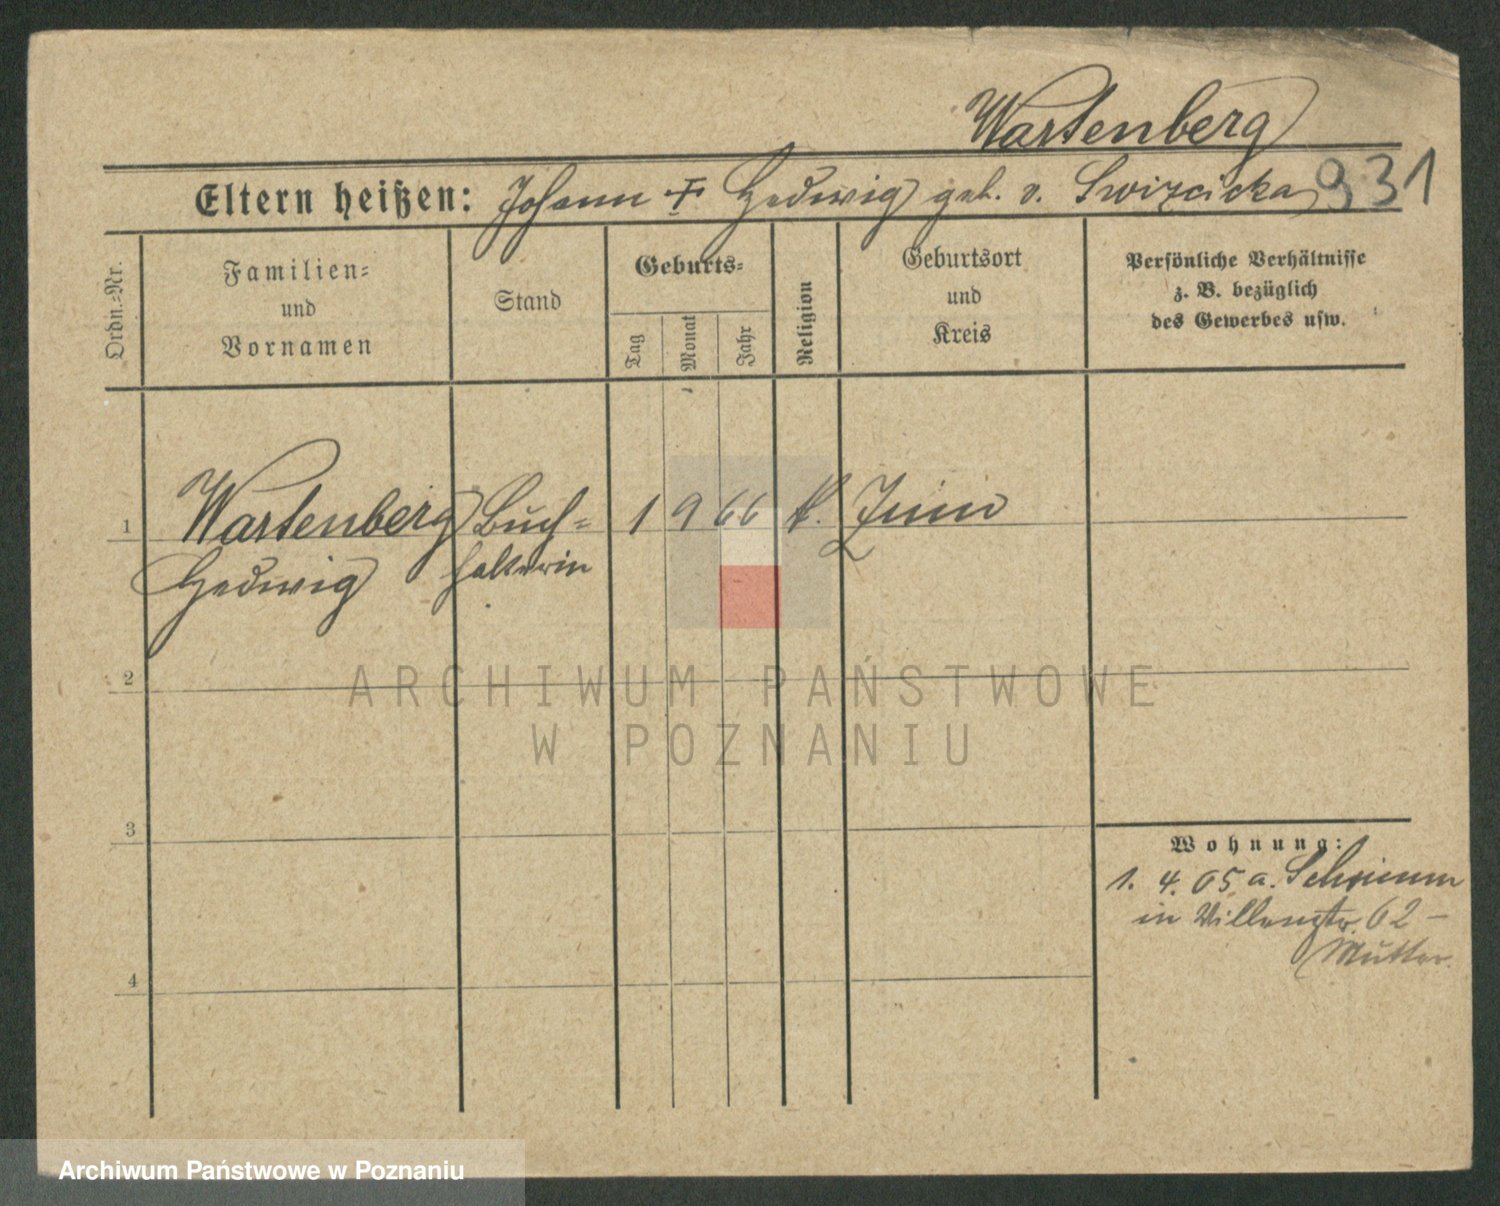 Wartenberg
Eltern heißen: Johann † Hedwig geb. v. Swizcicka 931
Ordn.-Nr.
Familien-
und
Vornamen
Stand
Geburts-
Tag
Monat
Jahr
Religion
Geburtsort
und
Kreis
Persönliche Verhältnisse
z. B. bezüglich
des Gewerbes usw.
1 Wartenberg Buch- 1 9 66 k.
Hedwig halterin
2
3
4
Wohnung:
1. 4. 05 a. Schrimm
in Villenstr. 62 -
Mutter.
ARCHIWUM PAŃSTWOWE
W POZNANIU
Archiwum Państwowe w Poznaniu